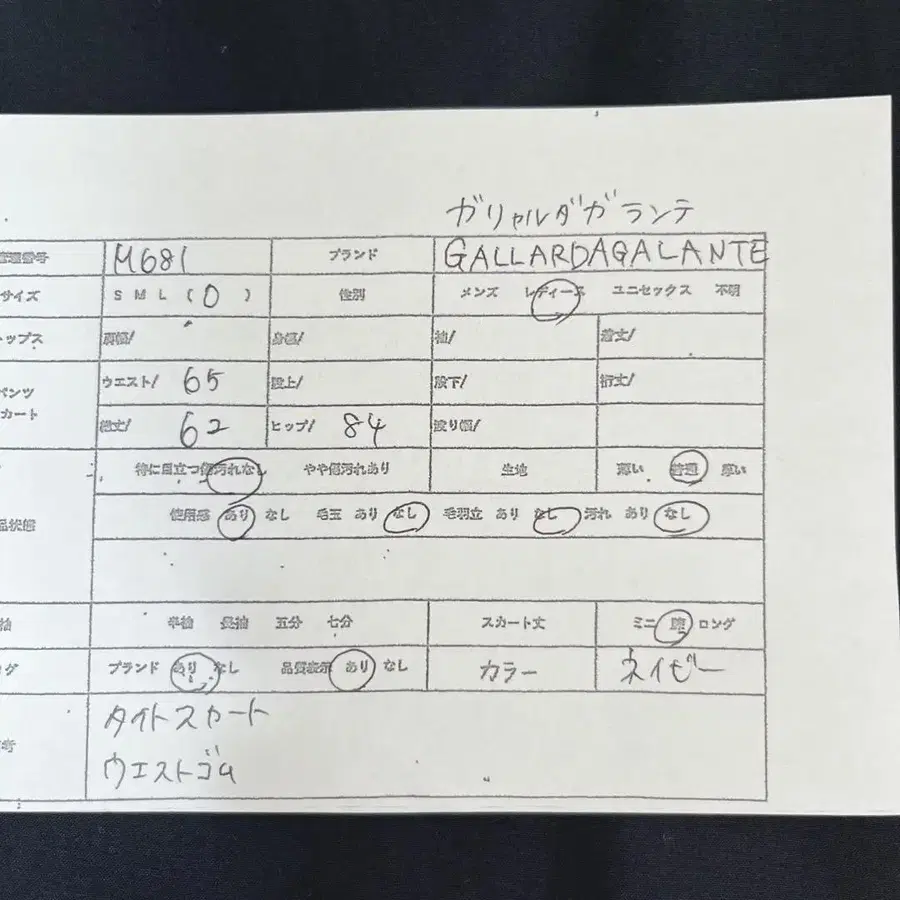 ガリャルダガランテ
管理番号 M681 ブランド GALLARDAGALANTE
サイズ S M L ( 0 ) 性別 メンズ レディース ユニセックス 不明
トップス 肩幅/ 身幅/ 袖/ 着丈/
パンツ ウエスト/ 65 股上/ 股下/ 裄丈/
スカート 総丈/ 62 ヒップ/ 84 渡り幅/
特に目立つ傷汚れなし やや傷汚れあり 生地 薄い 普通 厚い
品状態 使用感 あり なし 毛玉 あり なし 毛羽立 あり なし 汚れ あり なし
袖 半袖 長袖 五分 七分 スカート丈 ミニ 膝 ロング
グ ブランド あり なし 品質表示 あり なし カラー ネイビー
考 タイトスカート
ウエストゴム